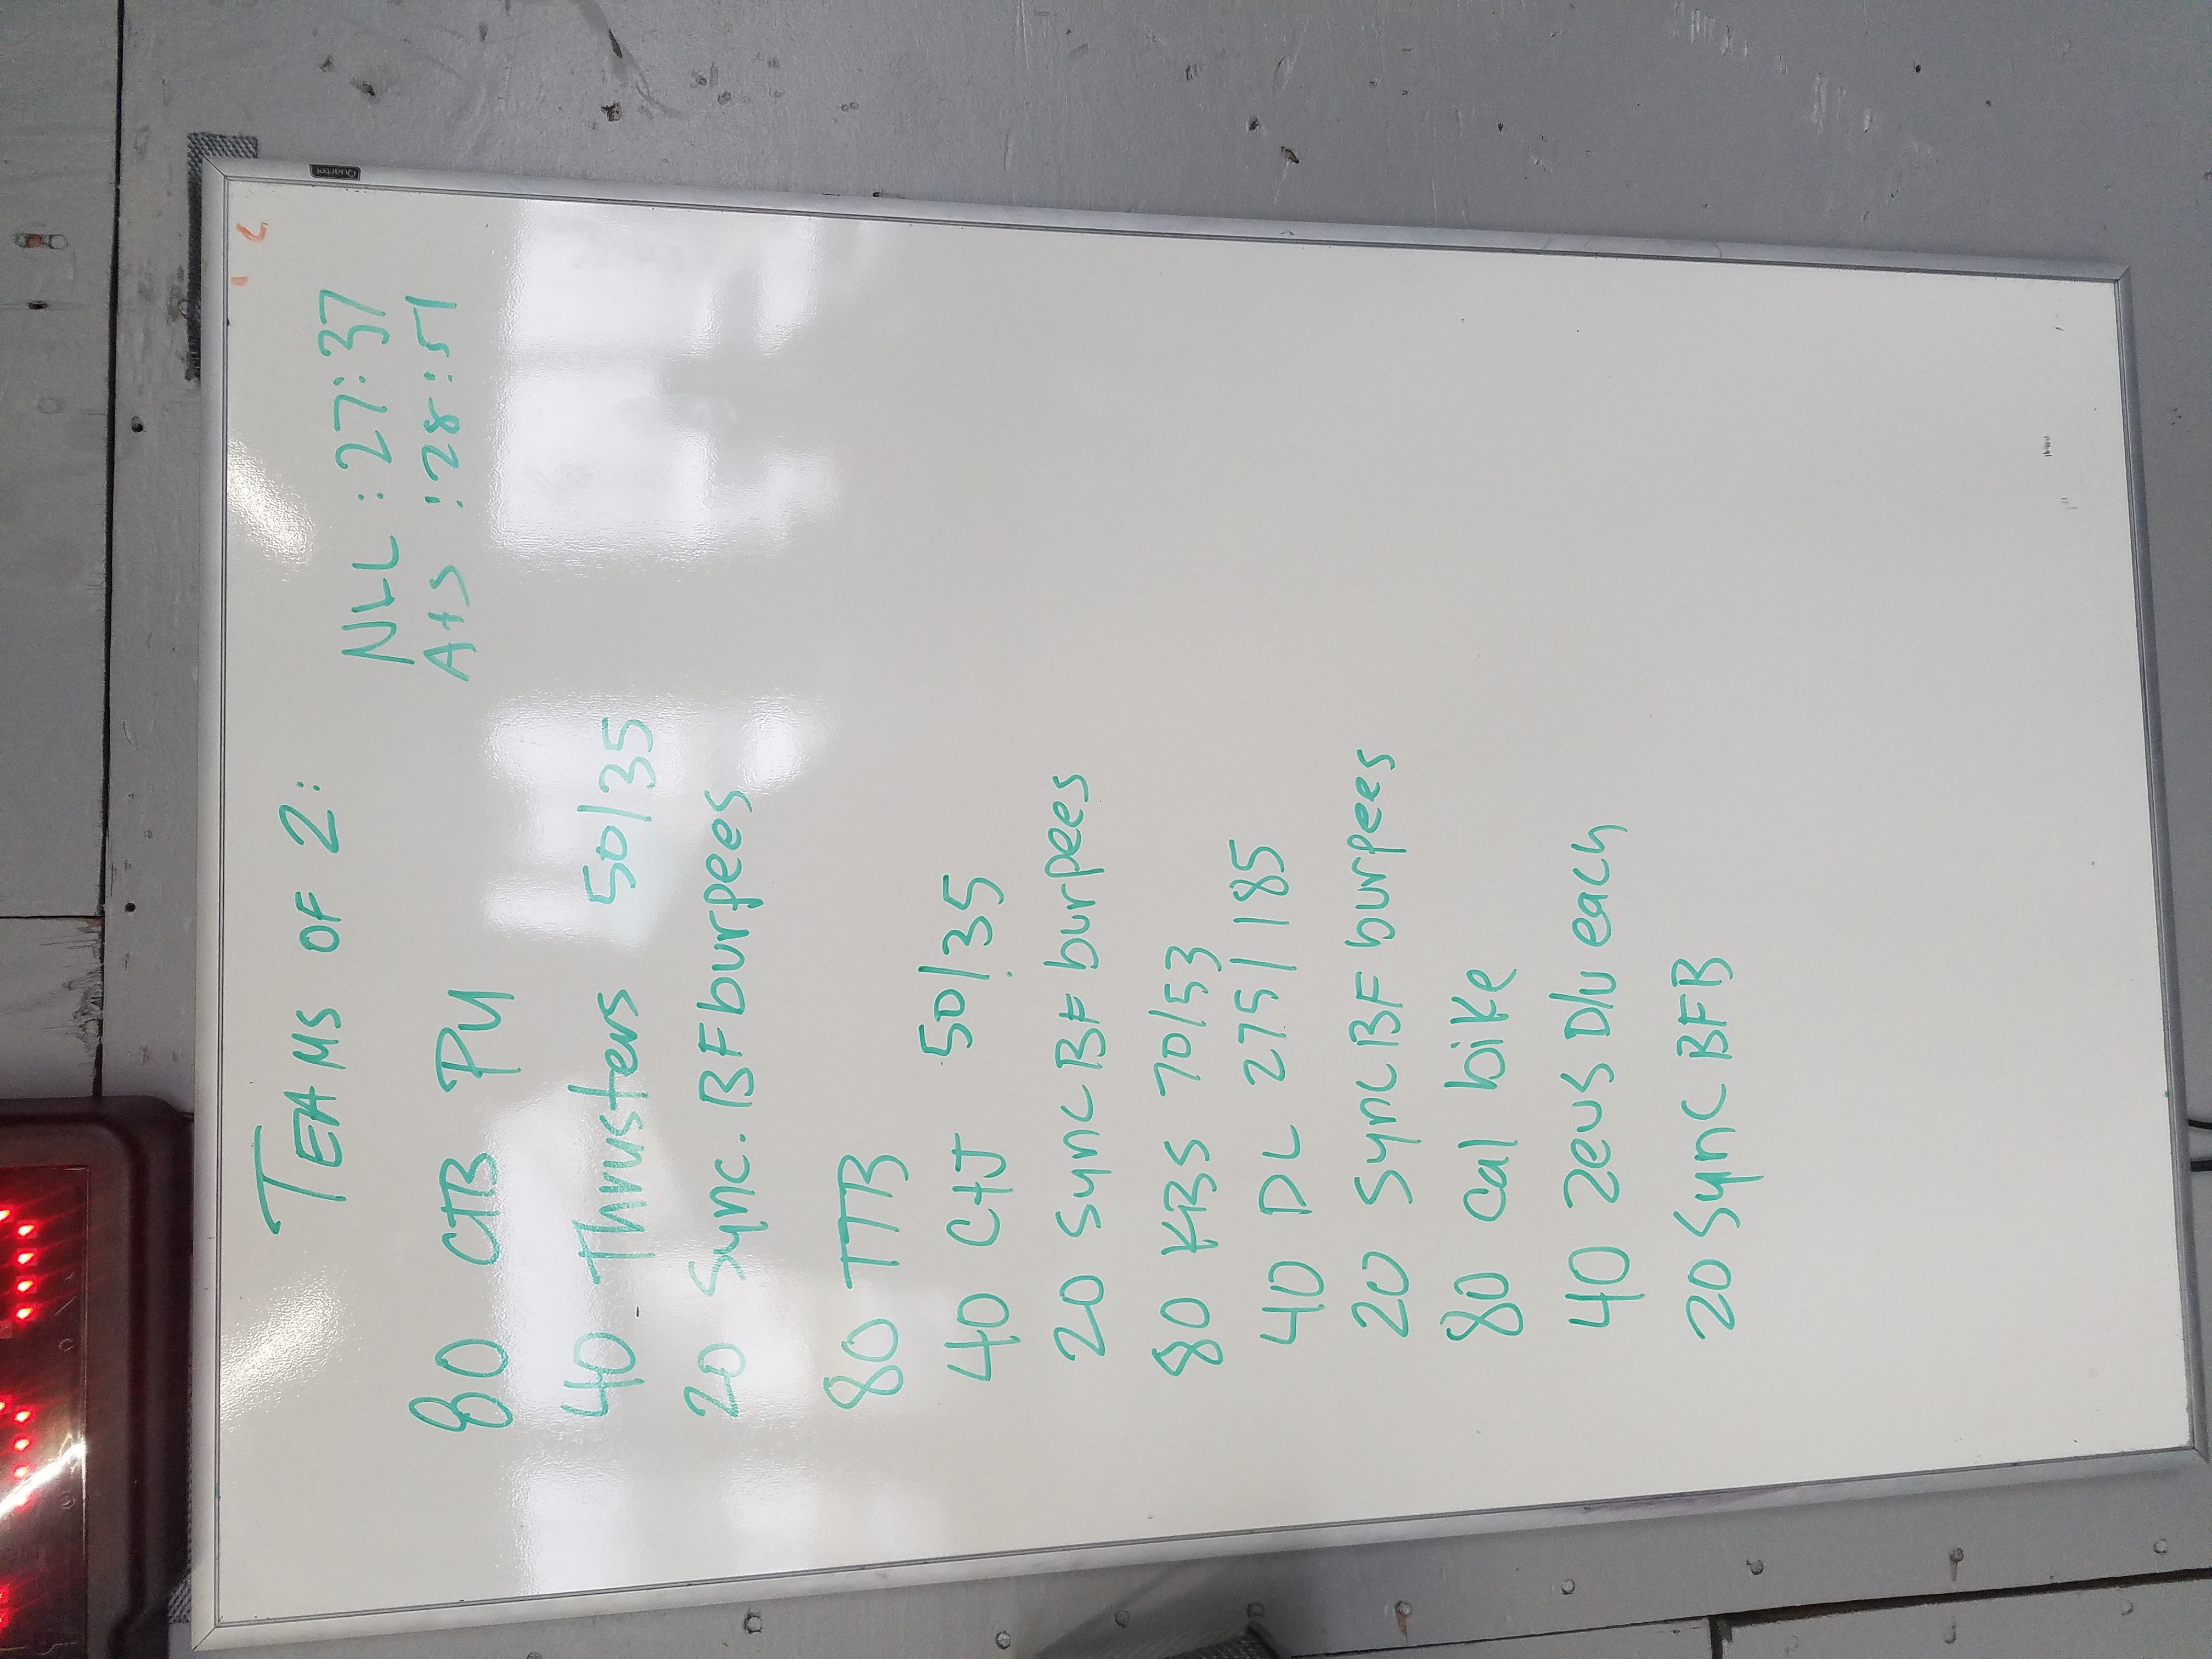 TEAMS OF 2:
NLL : 27:37
A+S : 28:51
80 CTB PU
40 Thrusters 50/35
20 Sync. BF burpees
80 TTB
40 C+J 50/35
20 Sync BF burpees
80 KBS 70/53
40 DL 275/185
20 Sync BF burpees
80 Cal bike
40 Zeus D/U each
20 Sync BFB
Quartet